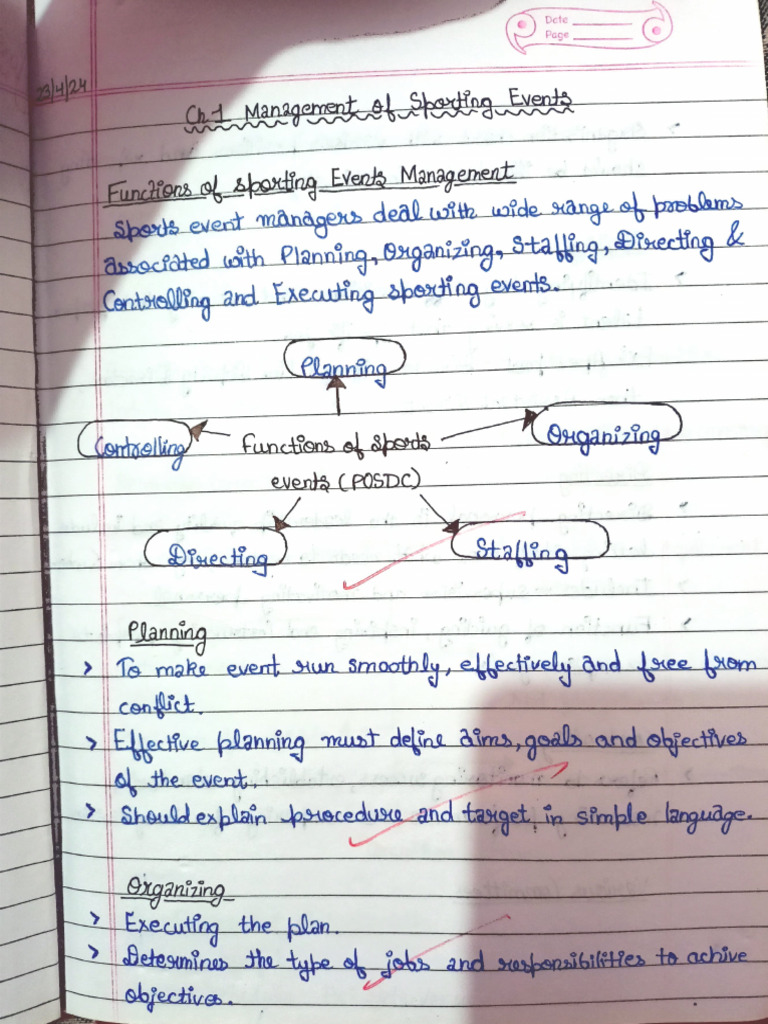 Date
Page
23/4/24
Ch.1 Management of Sporting Events
Functions of sporting Events Management
Sports event managers deal with wide range of problems
associated with Planning, Organizing, Staffing, Directing &
Controlling and Executing sporting events.
Planning
Controlling
Functions of sports
Organizing
events (POSDC)
Directing
Staffing
Planning
> To make event run smoothly, effectively and free from
conflict.
> Effective planning must define aims, goals and objectives
of the event.
> Should explain procedure and target in simple language.
Organizing
> Executing the plan.
> Determines the type of jobs and responsibilities to achive
objectives.